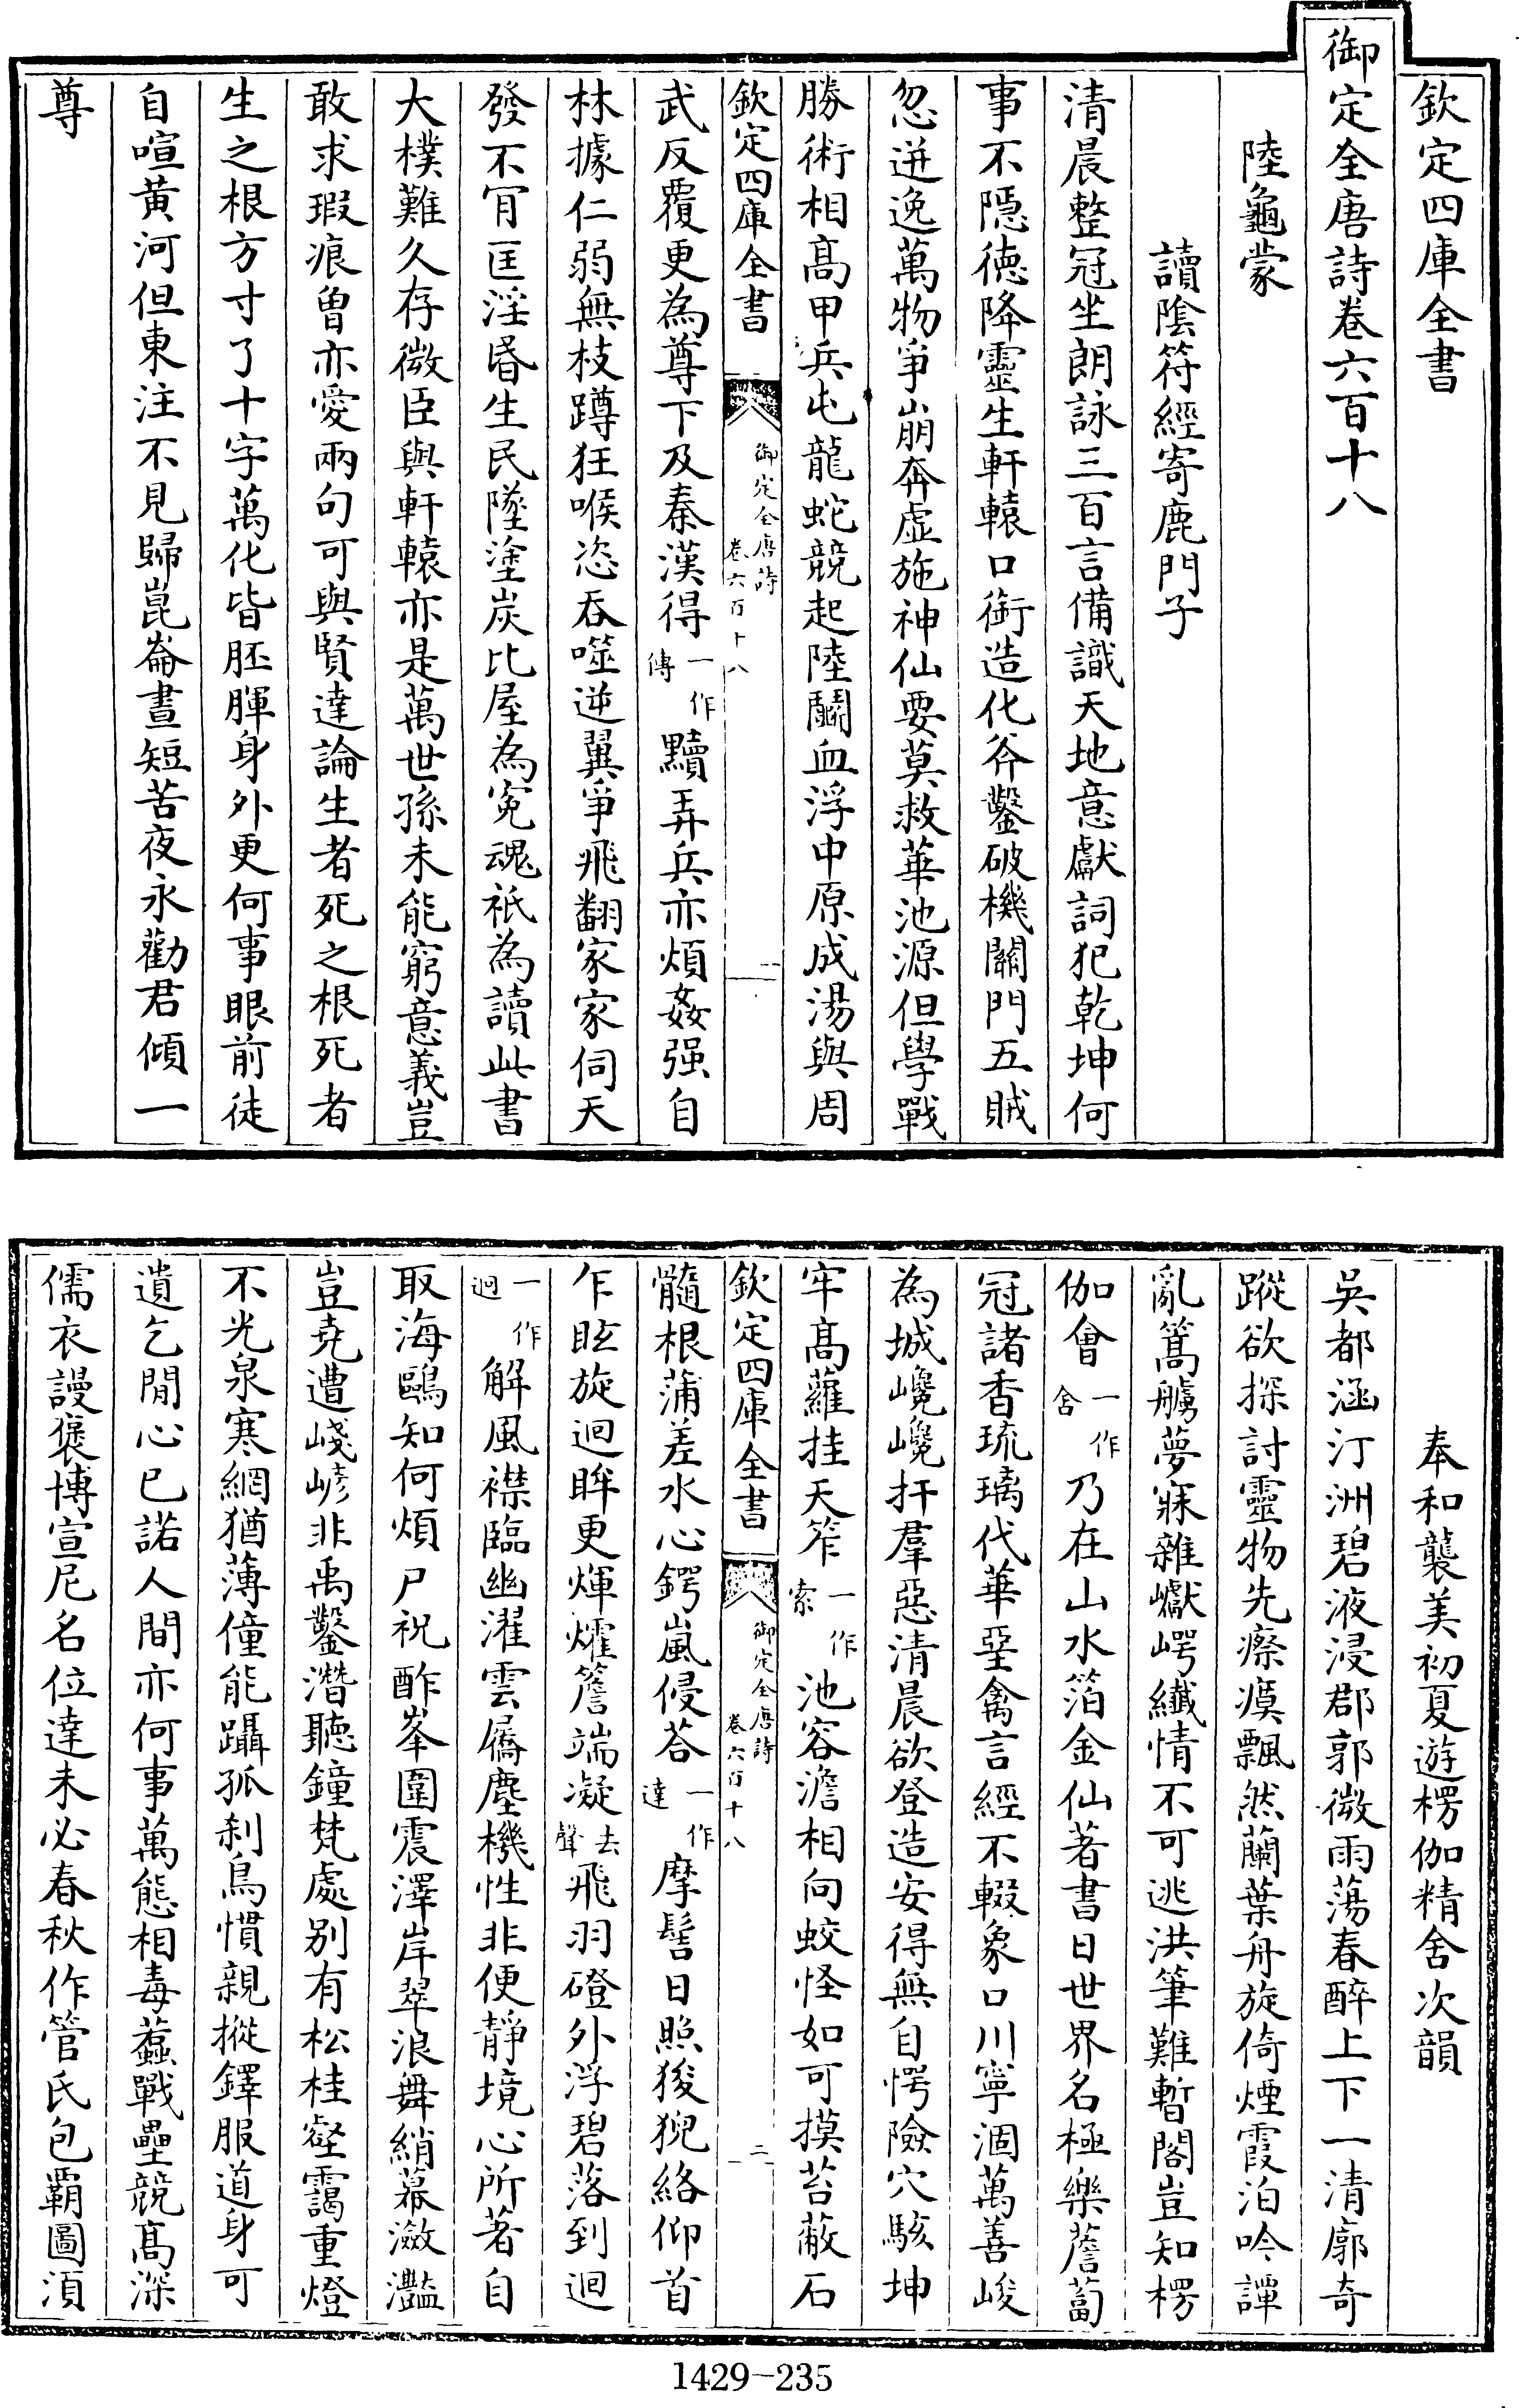 欽定四庫全書
御定全唐詩卷六百十八
陸龜蒙
讀陰符經寄鹿門子
清晨整冠坐朗詠三百言備識天地意獻詞犯乾坤何
事不隱德降靈生軒轅口銜造化斧鑿破機關門五賊
忽迸逸萬物爭崩奔虛施神仙要莫救華池源但學戰
勝術相高甲兵屯龍蛇競起陸鬭血浮中原成湯與周
欽定四庫全書 御定全唐詩 卷六百十八 一
武反覆更為尊下及秦漢得一作傳黷弄兵亦煩姦强自
林據仁弱無枝蹲狂喉恣吞噬逆翼爭飛翻家家伺天
發不肎匡淫昏生民墜塗炭比屋為寃魂祇為讀此書
大樸難久存微臣與軒轅亦是萬世孫未能窮意義豈
敢求瑕痕曾亦愛兩句可與賢達論生者死之根死者
生之根方寸了十字萬化皆胚腪身外更何事眼前徒
自喧黃河但東注不見歸崑崙晝短苦夜永勸君傾一
尊
奉和襲美初夏遊楞伽精舍次韻
吳都涵汀洲碧液浸郡郭微雨蕩春醉上下一清廓奇
蹤欲探討靈物先瘵瘼飄然蘭葉舟旋倚煙霞泊吟譚
亂篙艣夢寐雜巘崿纎情不可逃洪筆難暫閣豈知楞
伽會一作舍乃在山水箔金仙著書日世界名極樂簷蔔
冠諸香琉璃代華堊禽言經不輟象口川寧涸萬善峻
為城巉巉扞羣惡清晨欲登造安得無自愕險穴駭坤
牢高蘿挂天筰一作索池容澹相向蛟怪如可摸苔蔽石
欽定四庫全書 御定全唐詩 卷六百十八 二
髓根蒲差水心鍔嵐侵荅一作達摩髻日照狻猊絡仰首
乍眩旋迴眸更煇燿簷端凝去聲飛羽磴外浮碧落到迴
一作迥解風襟臨幽濯雲屩塵機性非便靜境心所著自
取海鷗知何煩尸祝酢峯圍震澤岸翠浪舞綃幕瀲灩
豈堯遭嶘嵃非禹鑿潛聽鐘梵處别有松桂壑靄重燈
不光泉寒網猶薄僮能躡孤刹鳥慣親摐鐸服道身可
遺乞閒心已諾人間亦何事萬態相毒蠚戰壘競高深
儒衣謾褒博宣尼名位達未必春秋作管氏包霸圖須
1429-235